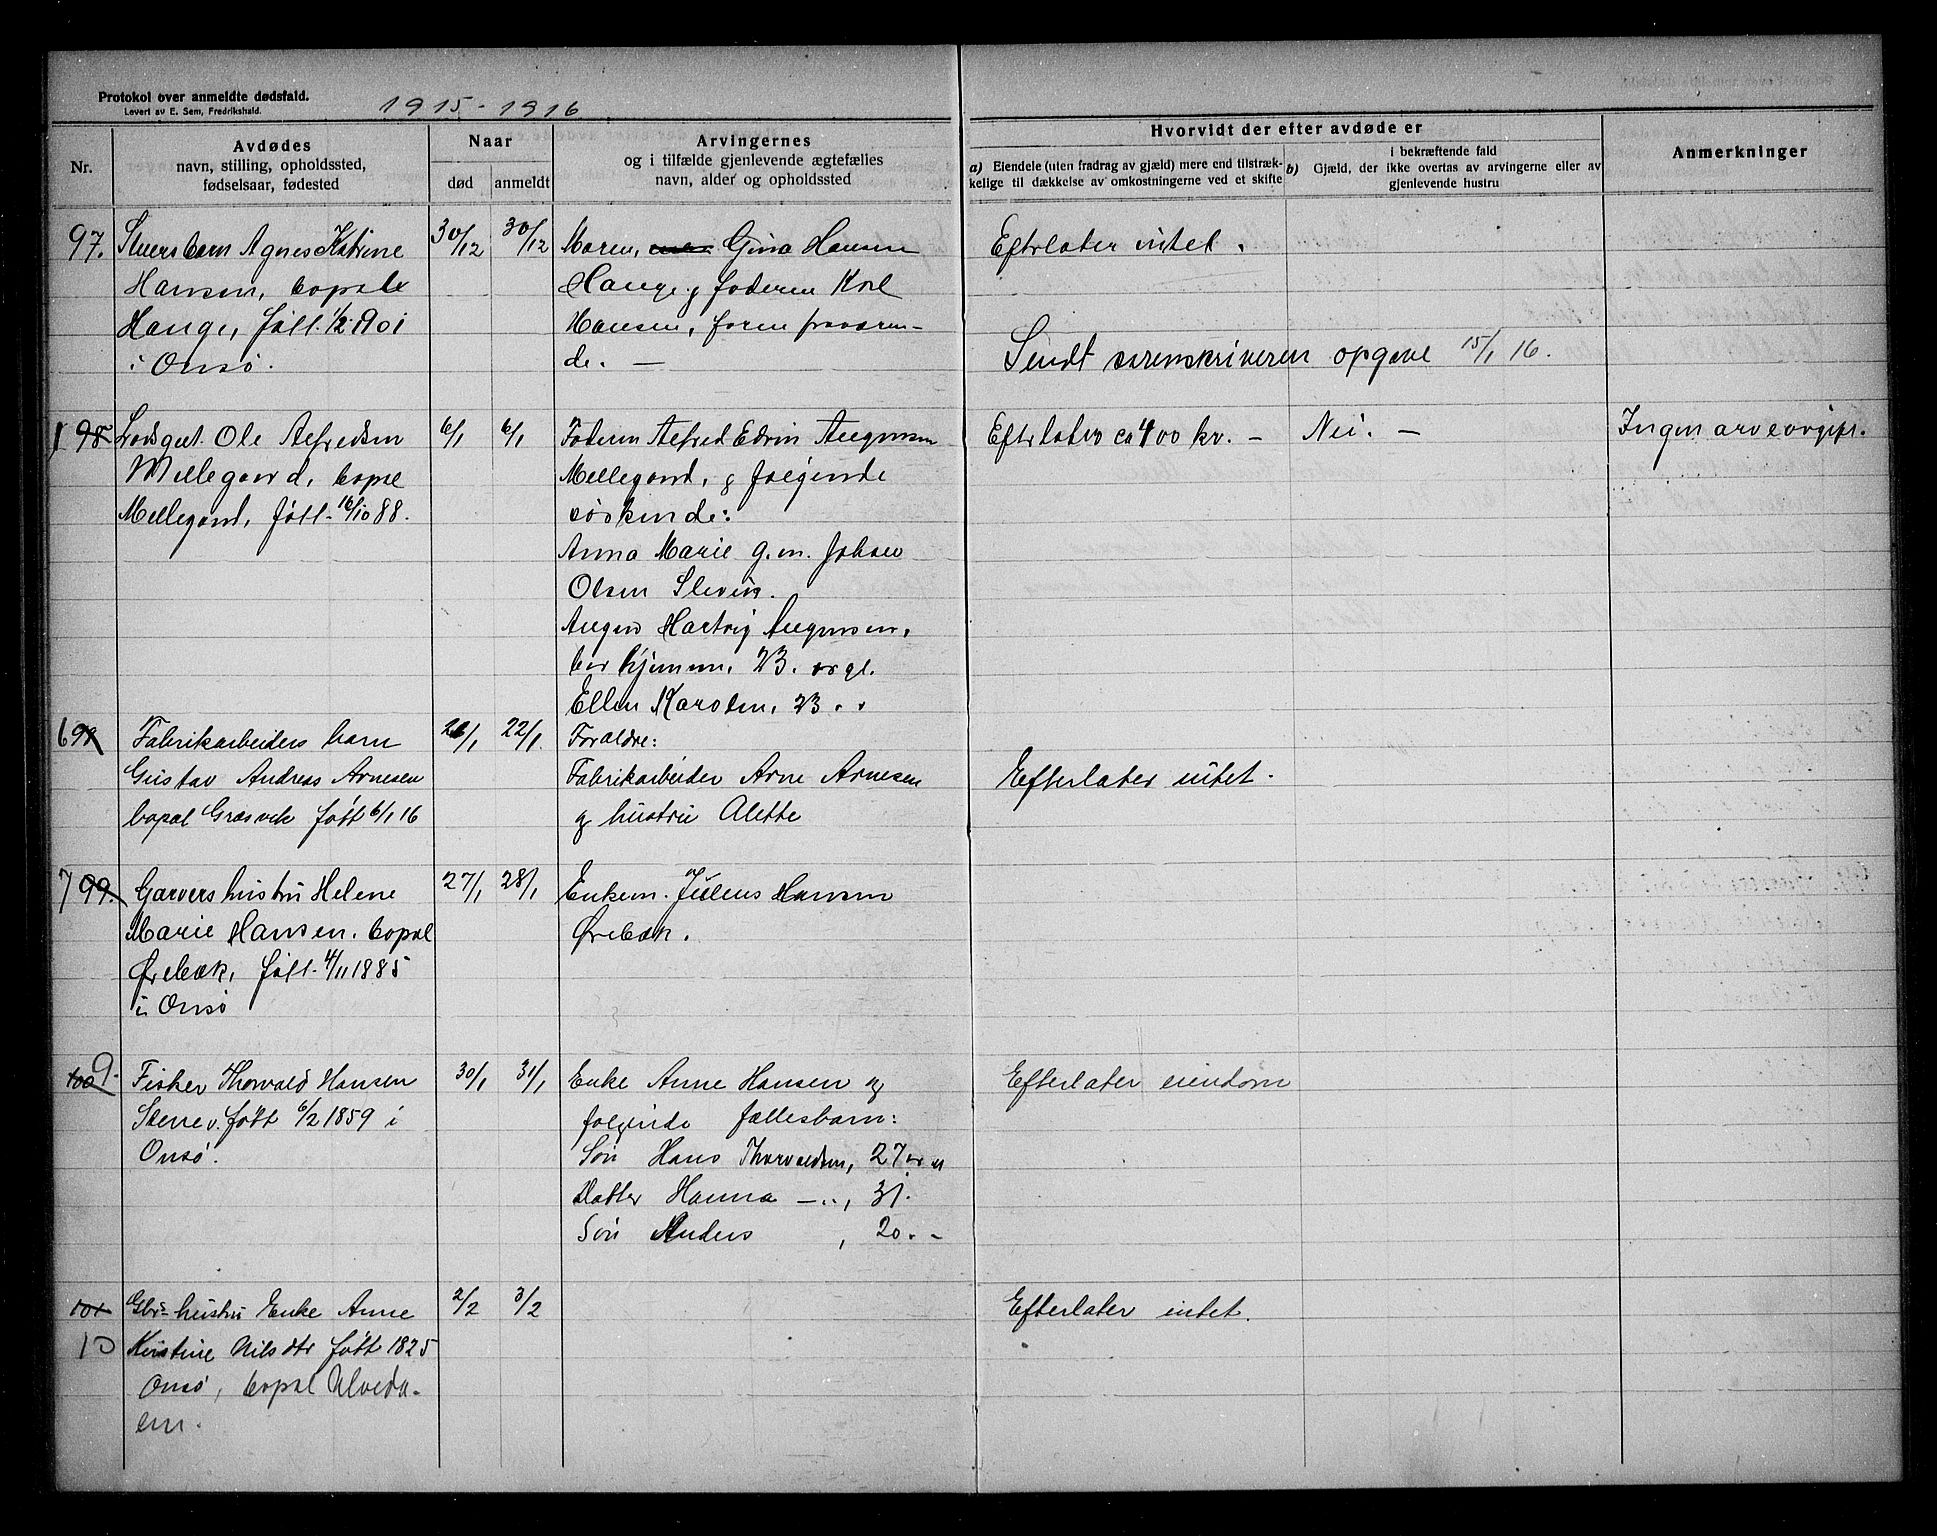 Protokol over anmeldte dødsfald.
Levert av E. Sem, Fredrikshald.
1915-1916
Nr.
Avdødes
navn, stilling, opholdssted,
fødselsaar, fødested
Naar
død
anmeldt
Arvingernes
og i tilfælde gjenlevende ægtefælles
navn, alder og opholdssted
Hvorvidt der efter avdøde er
a) Eiendele (uten fradrag av gjæld) mere end tilstræk-
kelige til dækkelse av omkostningerne ved et skifte
b) Gjæld, der ikke overtas av arvingerne eller av
i bekræftende fald
gjenlevende hustru
Anmerkninger
97. Agnes Katrine
Hansen, bopæl
Hauge, født 1/2 1901
i Onsø.
30/12 30/12
Moren, Gina Hansen
Hauge, faderen Karl
Hansen, for en fraværen-
de. —
Efterlater intet.
Sendt sorenskriveren opgave 15/1 16.
1 98 Ole Alfredsen
Mellegaard, bopæl
Mellegaard, født 16/10 88.
6/1 6/1
Faderen Alfred Edvin Augensen
Mellegaard, & følgende
søskende:
Anna Marie g.m. Johan
Olsen Slevik.
Augen Hartvig Augensen,
bor hjemme, 23. aar gl.
Ellen Karoline, 23 " "
Efterlater ca 400 kr. – Nei. –
Ingen arveavgift.
6 98 Fabrikarbeiders barn
Gustav Andreas Arnesen
bopæl Græsvik født 6/1 16
21/1 22/1
Forældre:
Fabrikarbeider Arne Arnesen
og hustru Alette
Efterlater intet.
7 99. Garvers hustru Helene
Marie Hansen. bopæl
Ørebæk, født 4/11 1885
i Onsø
27/1 28/1
Enkem. Julius Hansen
Ørebæk.
100 9. Fisker Thorvald Hansen
Slevik født 6/2 1859 i
Onsø.
30/1 31/1
Enke Anne Hansen og
følgende fællesbarn:
Søn Hans Thorvaldsen, 27 aar
Datter Hanna — " —, 31.
Søn Anders , 20. -
Efterlater eiendom
101 Gbr. hustru Enke Anne
10 Kirstine Nilsdtr født 1825
Onsø, bopæl Alveda-
len.
2/2 3/2
Efterlater intet.